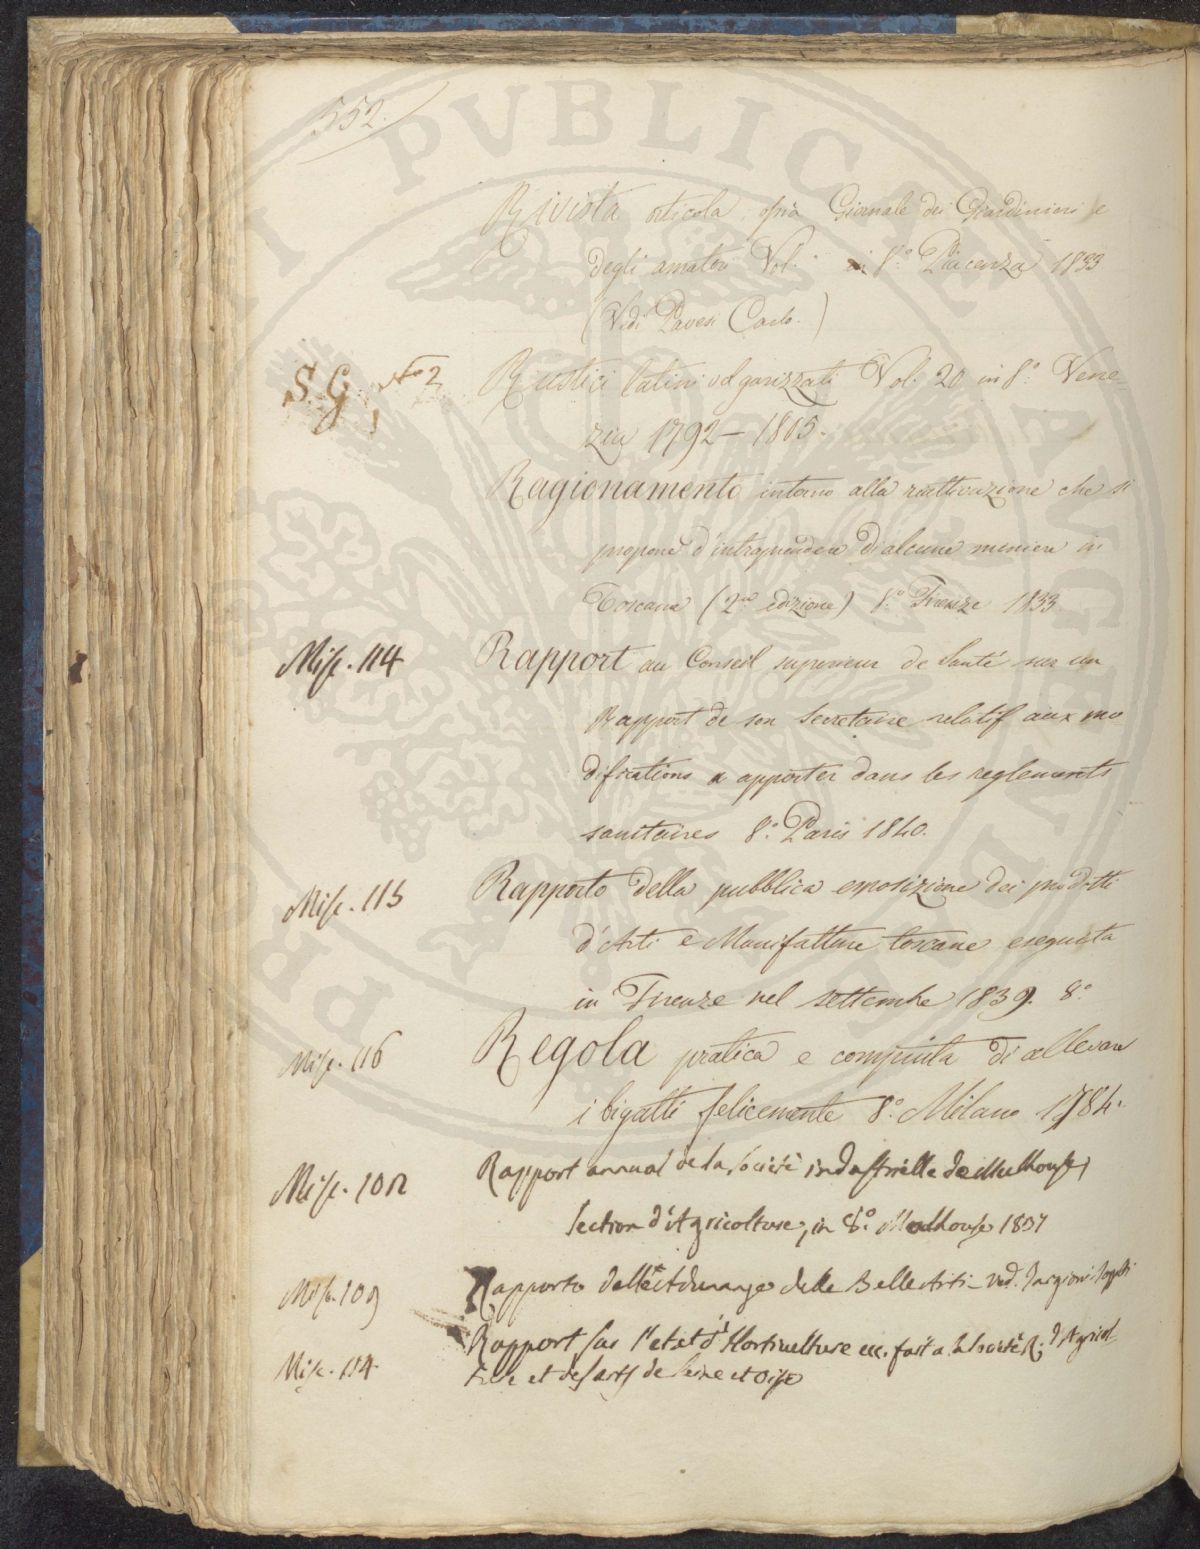 552.
Rivista orticola ossia Giornale dei Giardinieri e
degli amatori Vol. in 8.° Piacenza 1833
(Vedi Pavesi Carlo.)
S. G. N.° 2 Rustici latini volgarizzati Vol. 20 in 8.° Vene-
zia 1792 — 1805.
Ragionamento intorno alla riattivazione che si
propone d'intraprendere di alcune miniere in
Toscana (2.da edizione) 8.° Firenze 1833
Misc. 114 Rapport au Conseil superieur de Santé sur un
Rapport de son Secretaire relatif aux mo
difications a apporter dans les reglements
sanitaires 8.° Paris 1840.
Misc. 115 Rapporto della pubblica esposizione dei prodotti
d'Arti e Manifatture toscane eseguita
in Firenze nel settembre 1839. 8.°
Misc. 116 Regola pratica e compiuta di allevare
i bigatti felicemente 8.° Milano 1784.
Misc. 102 Rapport annual de la Societé industrielle de Mulhouse,
section d'Agricolture, in 8.° Mulhouse 1837
Misc. 109 Rapporto dell' Adunanza delle Belle Arti - ved. Targioni
Misc. 114. Rapport sur l'etat d'Hortirulture ec. fait a la Societé R. d'Agricol-
ture et des arts de Seine et Oise